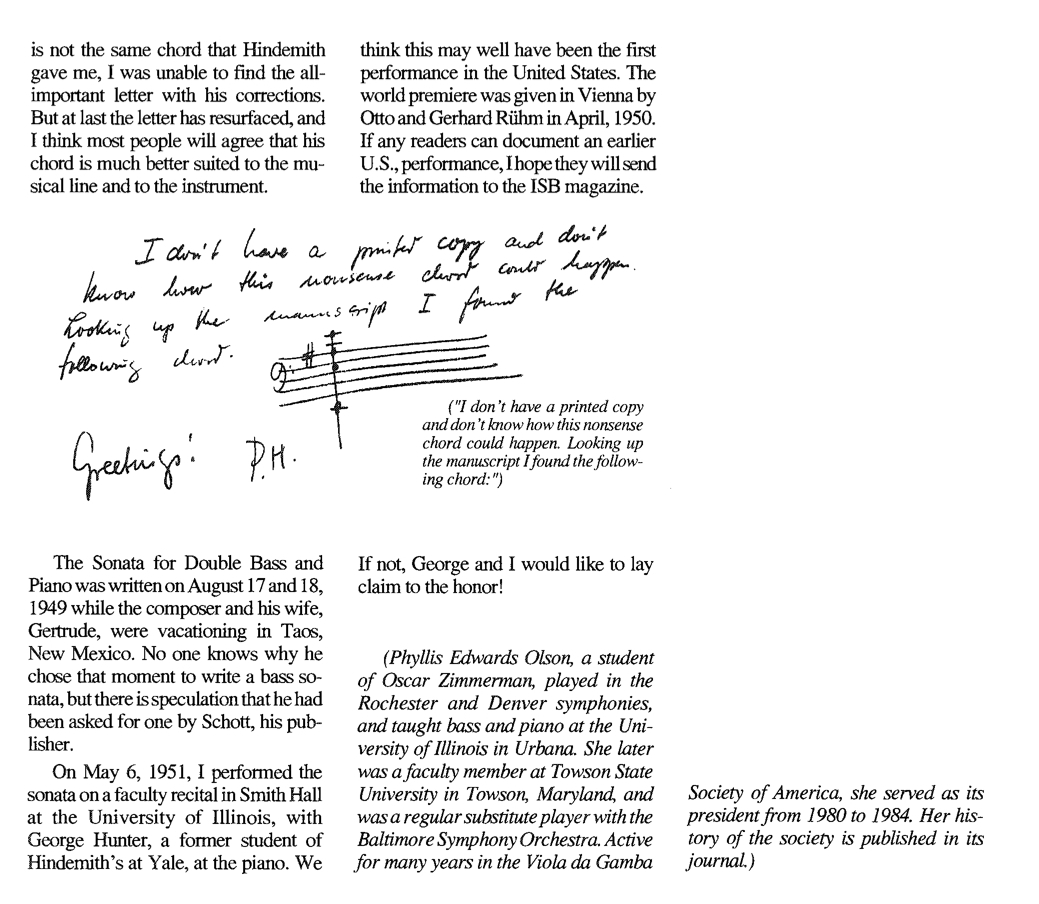 is not the same chord that Hindemith
gave me, I was unable to find the all-
important letter with his corrections.
But at last the letter has resurfaced, and
I think most people will agree that his
chord is much better suited to the mu-
sical line and to the instrument.
I don't have a printed copy and don't
know how this nonsense chord could happen.
Looking up the manuscript I found the
following chord.
Greetings! P.H.
("I don't have a printed copy
and don't know how this nonsense
chord could happen. Looking up
the manuscript I found the follow-
ing chord:")
The Sonata for Double Bass and
Piano was written on August 17 and 18,
1949 while the composer and his wife,
Gertrude, were vacationing in Taos,
New Mexico. No one knows why he
chose that moment to write a bass so-
nata, but there is speculation that he had
been asked for one by Schott, his pub-
lisher.
On May 6, 1951, I performed the
sonata on a faculty recital in Smith Hall
at the University of Illinois, with
George Hunter, a former student of
Hindemith's at Yale, at the piano. We
think this may well have been the first
performance in the United States. The
world premiere was given in Vienna by
Otto and Gerhard Rühm in April, 1950.
If any readers can document an earlier
U.S., performance, I hope they will send
the information to the ISB magazine.
If not, George and I would like to lay
claim to the honor!
(Phyllis Edwards Olson, a student
of Oscar Zimmerman, played in the
Rochester and Denver symphonies,
and taught bass and piano at the Uni-
versity of Illinois in Urbana. She later
was a faculty member at Towson State
University in Towson, Maryland, and
was a regular substitute player with the
Baltimore Symphony Orchestra. Active
for many years in the Viola da Gamba
Society of America, she served as its
president from 1980 to 1984. Her his-
tory of the society is published in its
journal.)